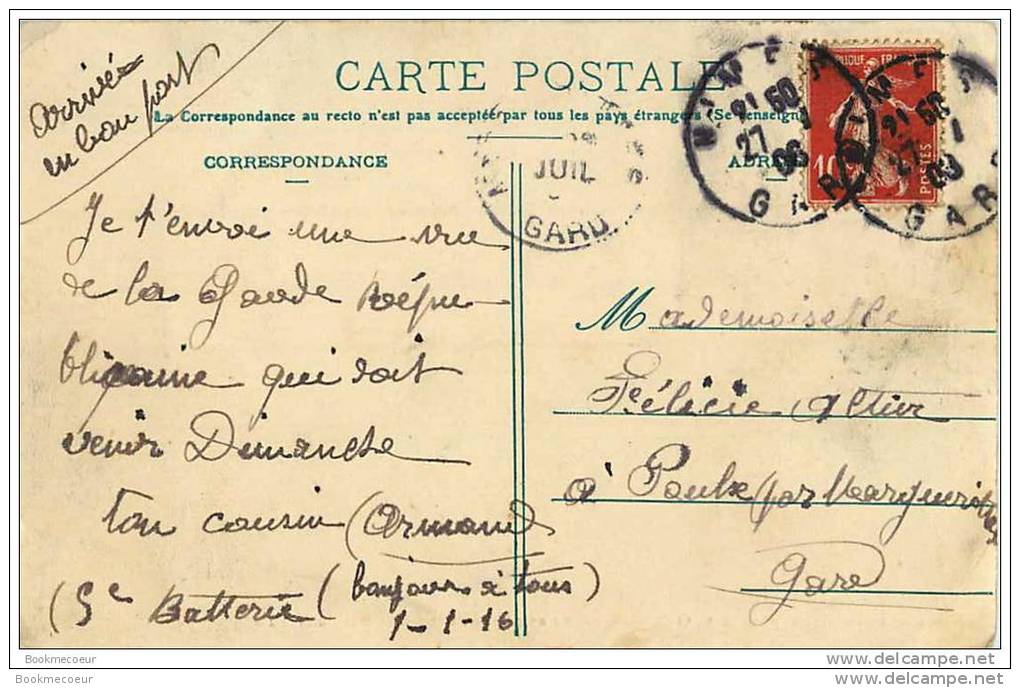 Arrivée
en bon port
CARTE POSTALE
La Correspondance au recto n'est pas acceptée par tous les pays étrangers (Se renseigner
CORRESPONDANCE
ADRE
JUIL
GARD
NIMES
21 50
27
GARD
NIMES
GARD
10
POSTES
Je t'envoi une vue
de la Garde Répu
blicaine qui doit
venir Dimanche
ton cousin (Armand)
(bonjour à tous)
(5e Batterie
1-1-16
Mademoiselle
Félicie
à Poulx par Marguerittes
Gard
Bookmecoeur
Bookmecoeur
www.delcampe.net
www.delcampe.net